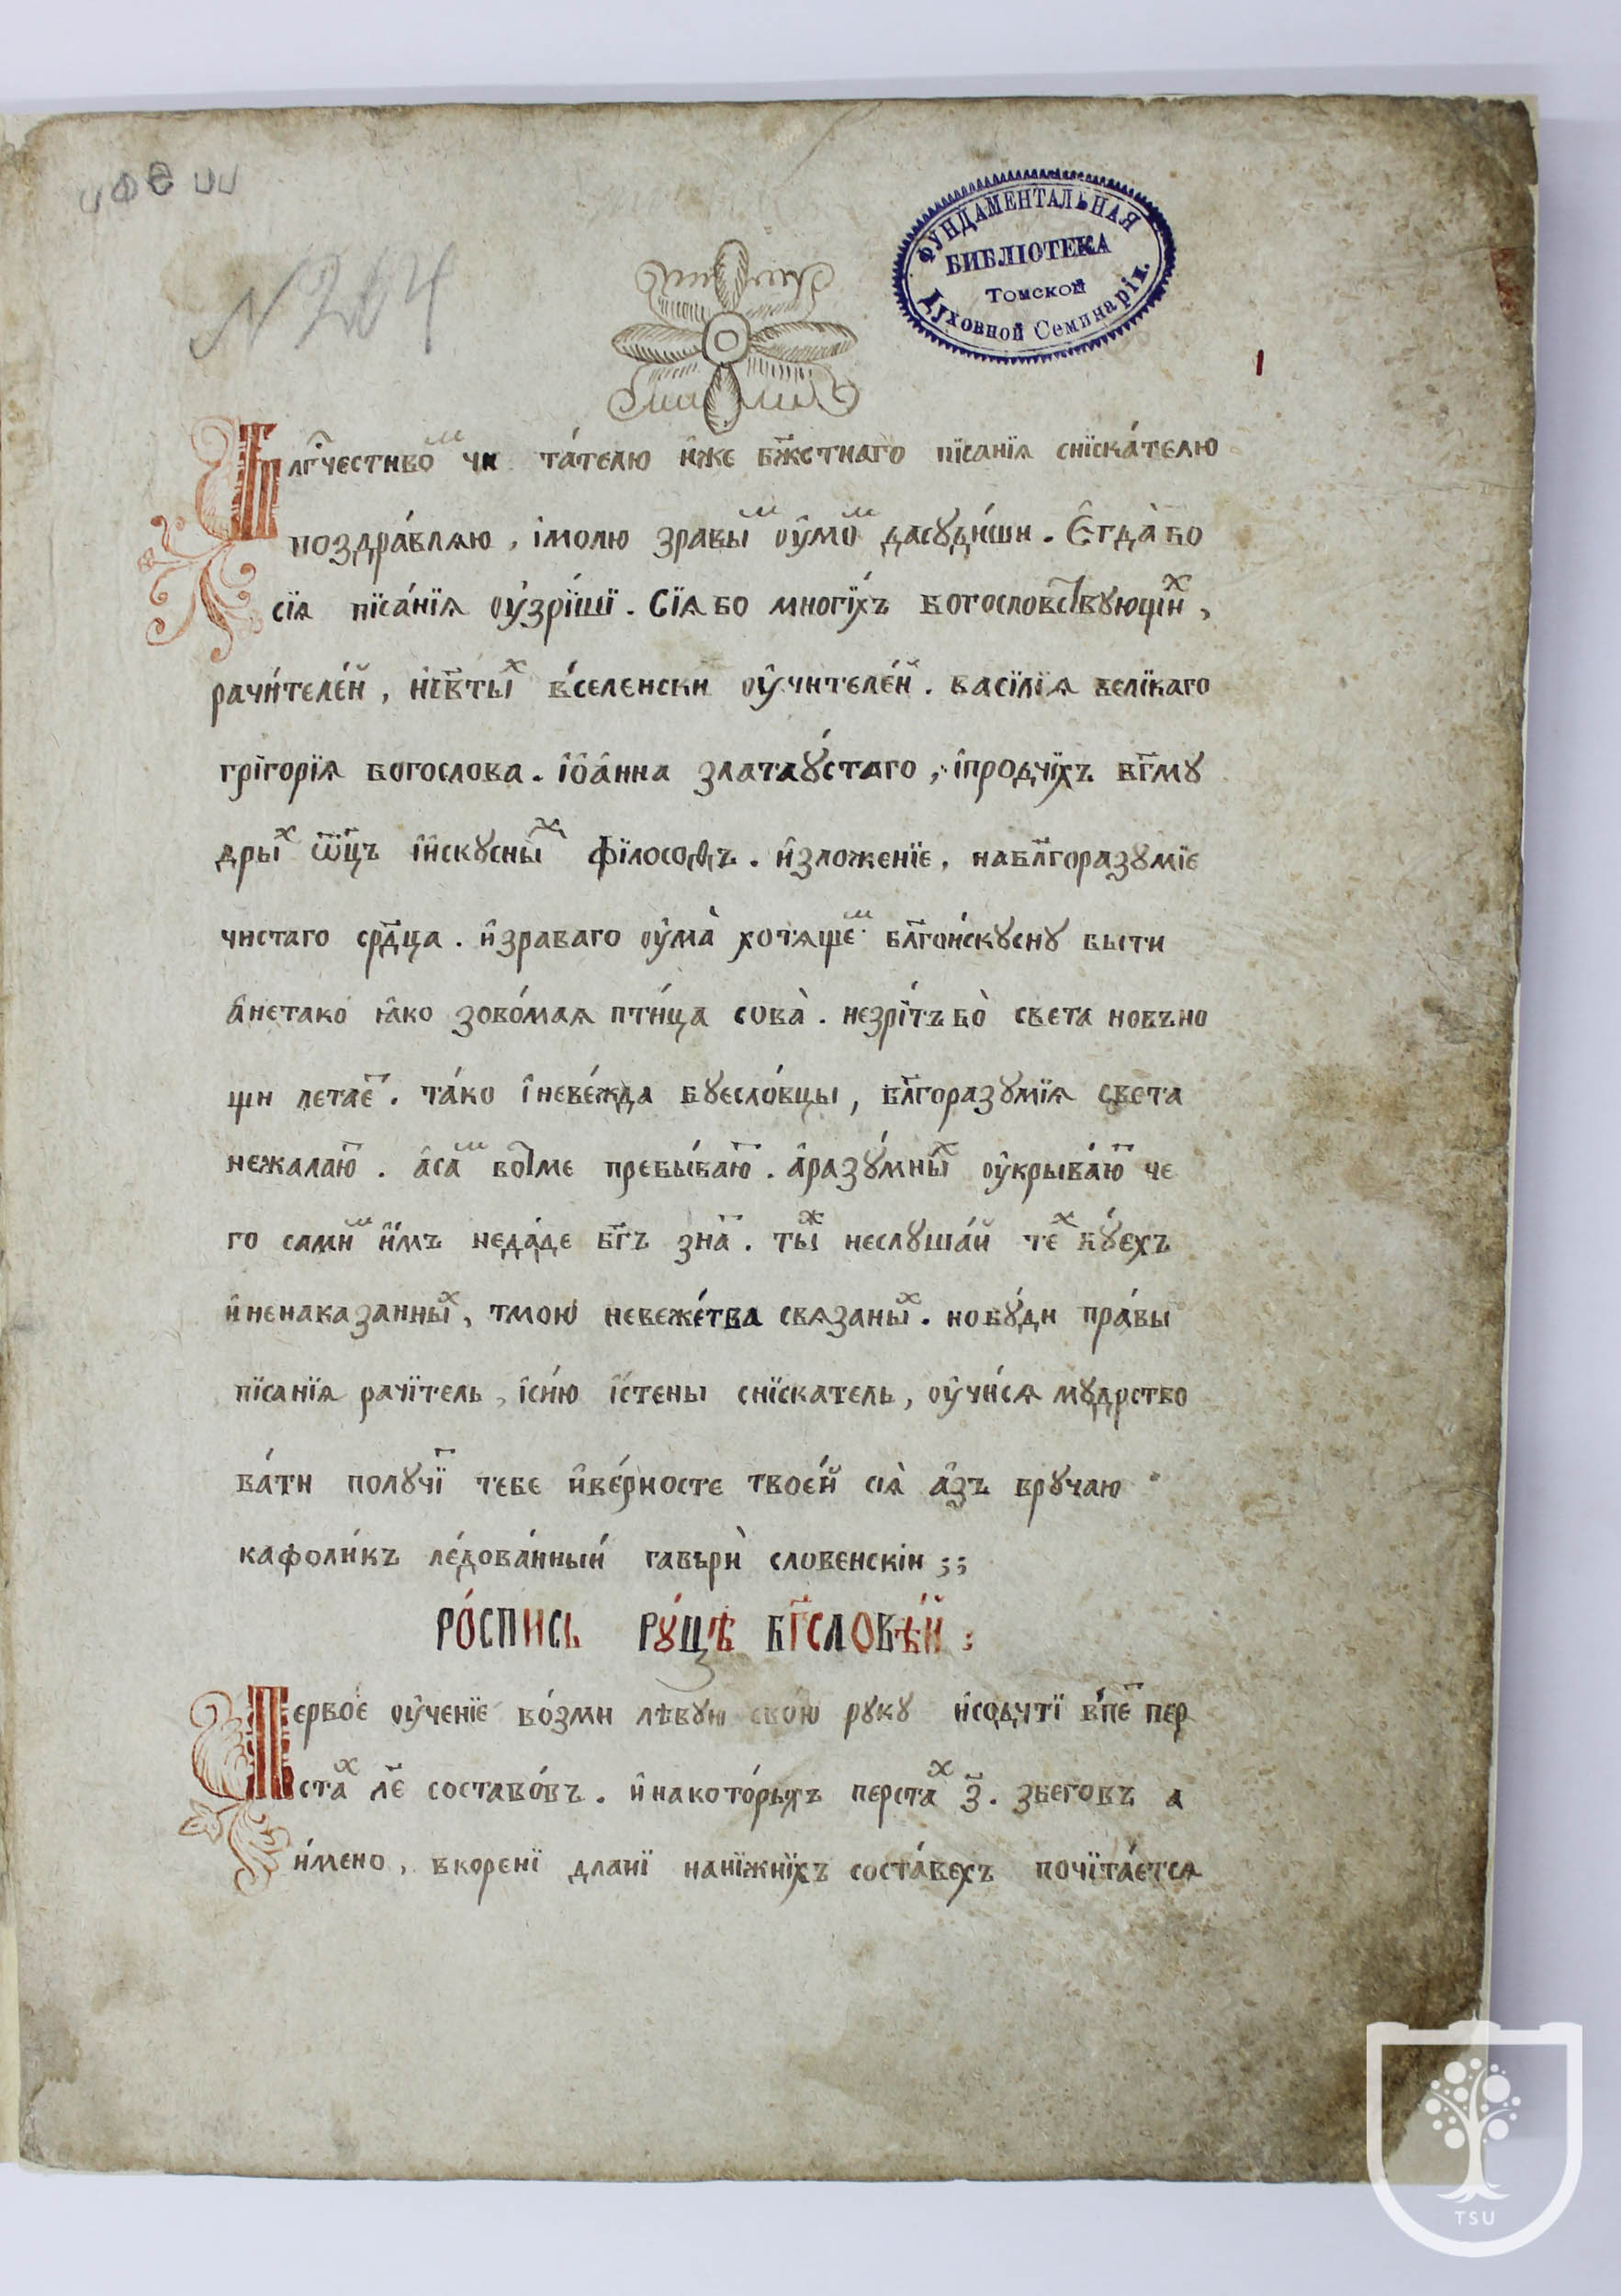 N 204
ФУНДАМЕНТАЛЬНАЯ
БИБЛІОТЕКА
Томской
Духовной Семинаріи.
1
Блг҃честиво ͫ чи та́телю и҆́же бж҃стнаго пїсанїѧ снїска́телю
поздра́влѧю , імолю зравы ͫ оу҆мо ͫ дасуди́ши . Є҆гда̀ бо
сїѧ пїса́нїѧ оу҆зрїшї . Сїѧ бо многі́хъ богословствующи ͯ ,
рачи́телей , и҆св҃ты ͯ в́селенски оу҆чителе́й . васїлїѧ велїкаго
грігорїѧ богослова . і҆ѡ҆а́нна златау́стаго , іпродчїхъ бг҃му
дры ͯ ѿц҃ъ і҆и҆скусны ͯ фїлософъ . и҆зложенїе , набл҃горазумїе
чистаго ср҃дца . и҆зраваго оу҆ма̀ хотѧще ͫ бл҃гои́скусну быти
а҆нетако ꙗ҆ко зово́маѧ пти́ца сова̀ . незрі́тъ бо̀ света новъно
щи летае ͭ . та́ко і҆неве́жда буесло́вцы , бл҃горазумїѧ света
нежалаю ͭ . а҆са ͫ вотме пребы́ваю ͭ . а҆разу́мны ͯ оу҆крыва́ю ͭ че
го сами ͫ и҆́мъ неда́де бг҃ъ зна ͭ . ты ͯ неслуша́й те ͯ бу́ехъ
и҆ненаказанны ͯ , тмою невеже́тва свѧзаны ͯ . нобу́ди пра́вы
пїсанїѧ рачїтель , і҆си́ю і҆́стены снїскатель , оу҆чи́сѧ мудрство
ва́ти получї ͭ тебе и҆ве́рносте твое́й сіѧ̀ а҆́зъ вручаю
кафоли́къ ле́дова́нный гавърѝ словенскіи ;;
РО́СПИСЬ РУ́ЦѢ БГ҃СЛОВѢ́Й ;
Первое оу҆ченїе во́зми лѣвую свою руку и҆сочті в́пе ͭ пер
ста ͯ л҃е соста́вовъ . и҆накото́рыхъ перста ͯ з҃ . збеговъ а
и́мено , вкоренї дланї нанїжнїхъ соста́вехъ почїта́етсѧ
TSU